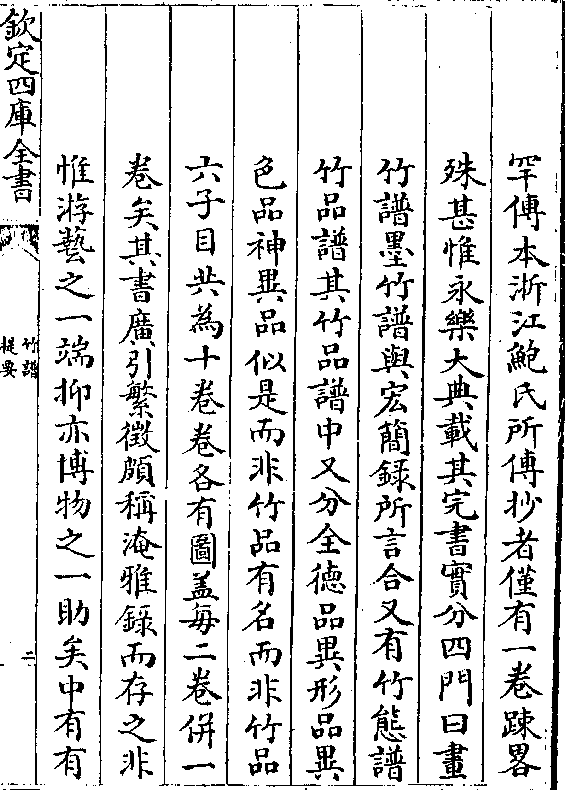 罕傳本浙江鮑氏所傳抄者僅有一卷踈畧
殊甚惟永樂大典載其完書實分四門曰畫
竹譜墨竹譜與宏簡錄所言合又有竹態譜
竹品譜其竹品譜中又分全德品異形品異
色品神異品似是而非竹品有名而非竹品
六子目共為十卷卷各有圖盖每二卷併一
卷矣其書廣引繁徵頗稱淹雅錄而存之非
惟游藝之一端抑亦博物之一助矣中有有
欽定四庫全書
竹譜
提要
二